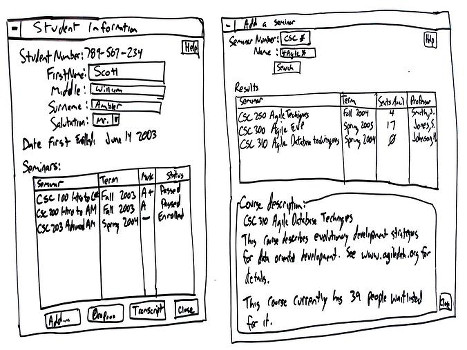 Student Information
Help
Student Number: 789-567-234
First Name: Scott
Middle: William
Surname: Ambler
Salutation: Mr.
Date First Enroll: June 14 2003
Seminars:
Seminar Term Mark Status
CSC 100 Intro to Fall 2003 A+ Passed
CSC 200 Intro to AM Fall 2003 A Passed
CSC 203 Advanced AM Spring 2004 — Enrolled
Add... Drop... Transcript Close
Add a seminar
Help
Seminar Number: CSC #
Name: *Agile*
Search
Results
Seminar Term Seats Avail Professor
CSC 250 Agile Techniques Fall 2004 4 Smith, J.
CSC 300 Agile Spring 2005 17 Jones, S.
CSC 310 Agile Database techniques Spring 2004 Ø Johnson,
Course description:
CSC 310 Agile Database Techniques
This course describes evolutionary development strategies
for data oriented development. See www.agiledata.org for
details.
This course currently has 39 people waitlisted
for it.
Close